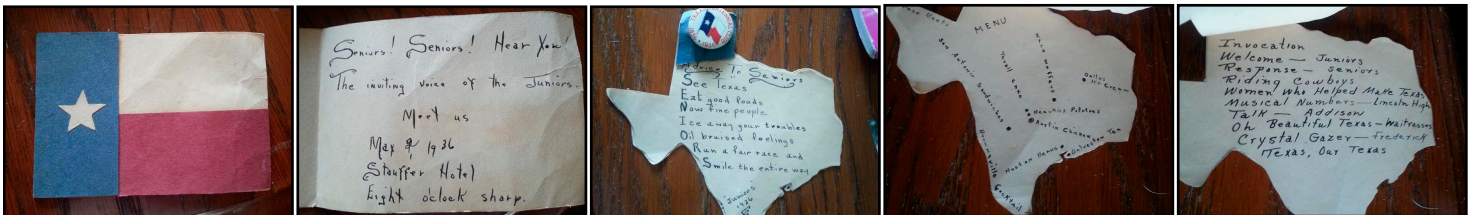 Seniors! Seniors! Hear You!
The inviting voice of the Juniors.
Meet us
May 9, 1936
Stauffer Hotel
Eight o'clock sharp.
Advice To Seniors
See Texas
Eat good foods
Now fine people
Ice away your troubles
Oil bruised feelings
Run a fair race and
Smile the entire way
Juniors
1936
MENU
San Antonio Sandwiches
Waco Waffles
Dallas
Ice Cream
Potatoes
Austin
Houston Hams
Galveston
Brownsville Cocktail
Invocation
Welcome — Juniors
Response — Seniors
Riding Cowboys
Women Who Helped Make Texas
Musical Numbers — Lincoln High
Talk — Addison
Oh Beautiful Texas — Waitresses
Crystal Gazer — Frederick
Texas, Our Texas